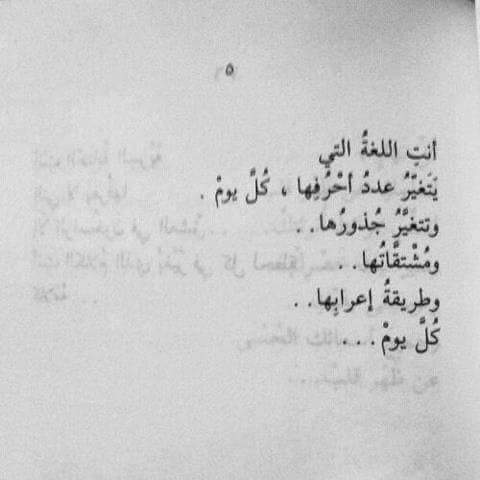 ٥
أنتِ اللغةُ التي
يَتَغيَّرُ عددُ أحْرُفِها ، كُلَّ يومْ .
وتتغيَّرُ جُذورُها . .
ومُشْتقَّاتُها . .
وطريقةُ إعرابِها . .
كُلَّ يومْ . . .